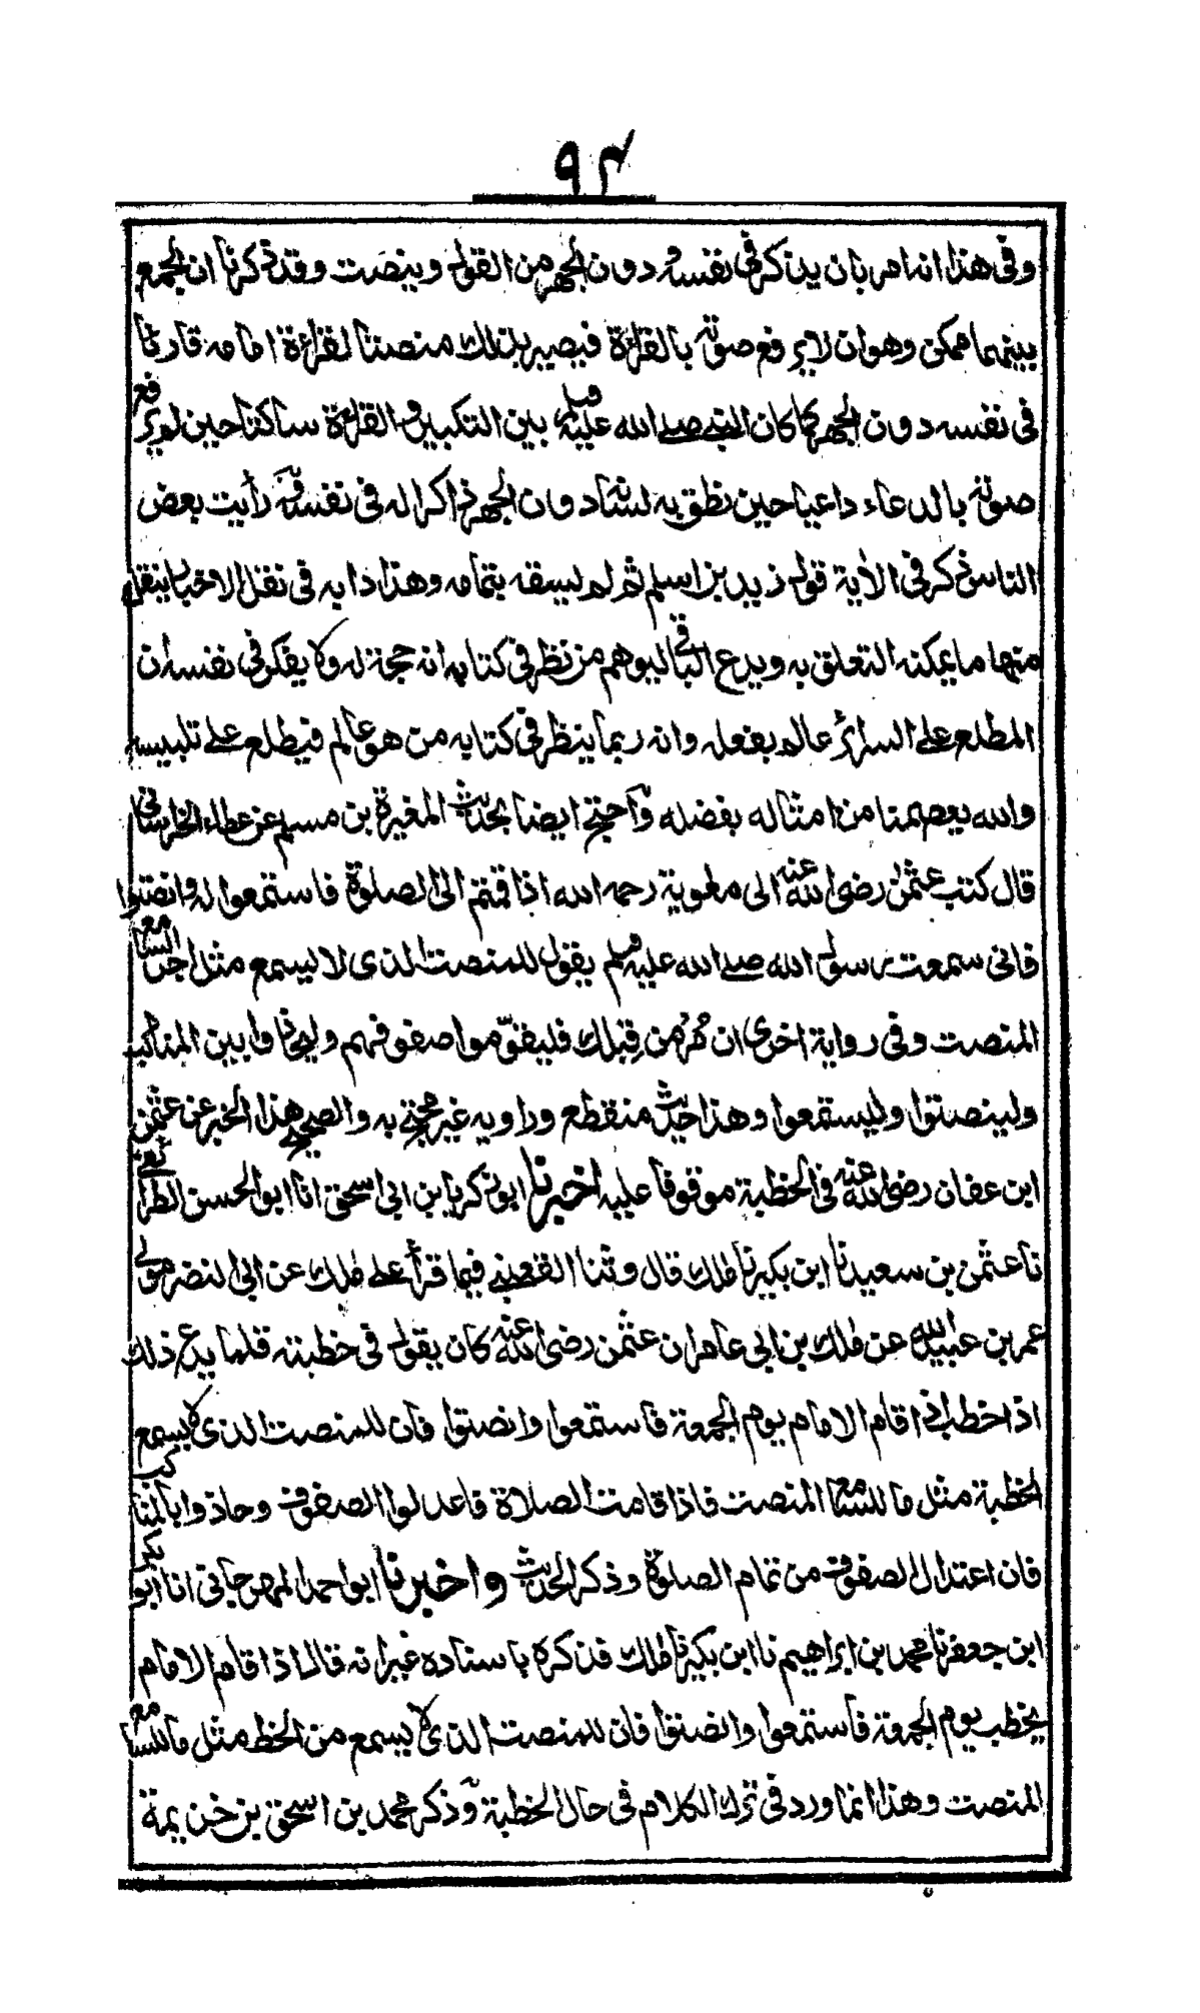 ٩٤
وفى هذا انه امر بان يذكر فى نفسه دون الجهر من القول وينصت وقد ذكرنا ان الجمع
بينهما ممكن وهو ان لا يرفع صوته بالقراءة فيصير بذلك منصتا لقراءة امامه قارئا
فى نفسه دون الجهر كما كان النبى صلى الله عليه وسلم بين التكبير والقراءة ساكتا حين لم يرفع
صوته بالدعاء داعيا حين نطق به لسانه دون الجهر ذاكرا له فى نفسه ورأيت بعض
الناس ذكر فى الاية قول زيد بن اسلم ثم لم يسقه بتمامه وهذا دابه فى نقل الاخبار ينقل
منها ما يمكنه التعلق به ويدع الباقى ليوهم من نظر فى كتابه انه حجة له ولا يفكر فى نفسه ان
المطلع على السرائر عالم بفعله وانه ربما ينظر فى كتابه من هو عالم فيطلع على تلبيسه
والله يعصمنا من امثاله بفضله واحتج ايضا بحديث المغيرة بن مسلم عن عطاء الخراسانى
قال كتب عثمن رضى الله عنه الى معوية رحمه الله اذا قمتم الى الصلوة فاستمعوا له وانصتوا
فانى سمعت رسول الله صلى الله عليه وسلم يقول للمنصت الذى لا يسمع مثل اجر السامع
المنصت وفى رواية اخرى ان مر من قبلك فليقوموا صفوفهم وليحاذوا بين المناكب
ولينصتوا وليستمعوا وهذا حديث منقطع وراويه غير محتج به والصحيح هذا الخبر عن عثمن
ابن عفان رضى الله عنه فى الخطبة موقوفا عليه اخبرنا ابو زكريا بن ابى اسحق انا ابو الحسن الطرائفى
نا عثمن بن سعيد نا ابن بكير نا ملك قال وثنا القعنبى فيما قرأ على ملك عن ابى النضر مولى
عمر بن عبيد الله عن ملك بن ابى عامر ان عثمن رضى الله عنه كان يقول فى خطبته قلما يدع ذلك
اذا خطب اذا قام الامام يوم الجمعة فاستمعوا وانصتوا فان للمنصت الذى لا يسمع
الخطبة مثل ما للسامع المنصت فاذا قامت الصلاة فاعدلوا الصفوف وحاذوا بالمناكب
فان اعتدال الصفوف من تمام الصلوة وذكر الحديث واخبرنا ابو احمد المهرجانى انا ابو بكر
ابن جعفر نا محمد بن ابراهيم نا ابن بكير نا ملك فذكره باسناده غير انه قال اذا قام الامام
يخطب يوم الجمعة فاستمعوا وانصتوا فان للمنصت الذى لا يسمع من الخط مثل ما للسامع
المنصت وهذا انما ورد فى ترك الكلام فى حال الخطبة وذكر محمد بن اسحق بن خزيمة